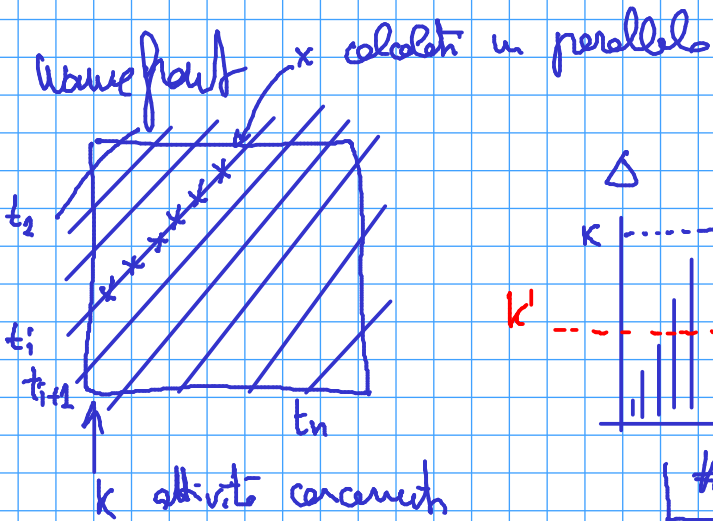 wavefront
x calcolati in parallelo
Δ
t₂
K
k'
tᵢ
tᵢ₊₁
tₙ
K attività concorrenti